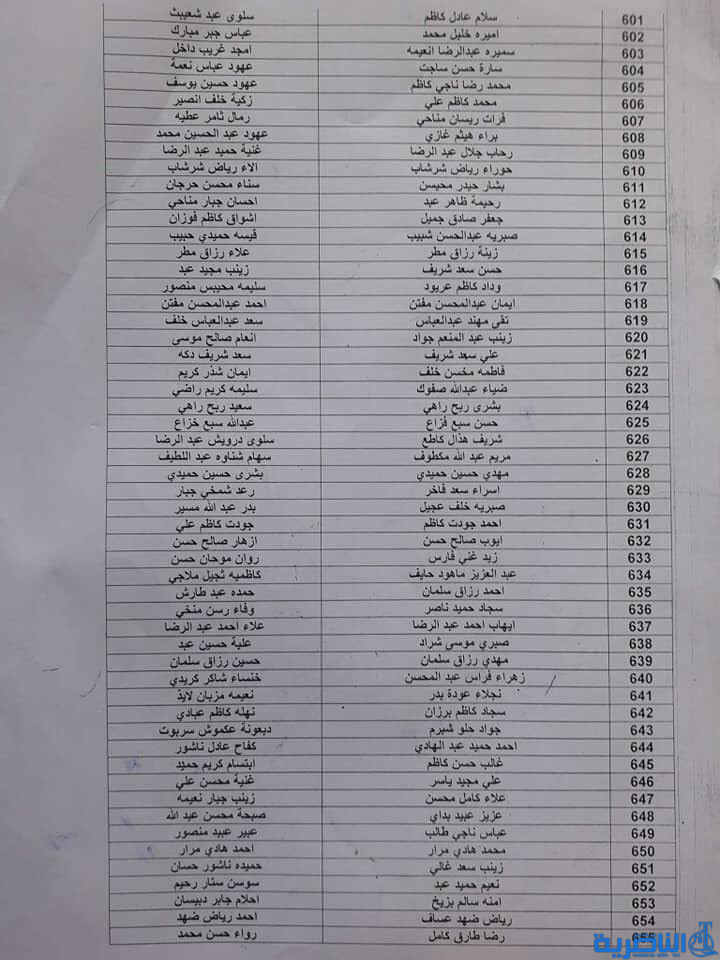 601 سلام عادل كاظم سلوى عبد شعيبث
602 اميره خليل محمد عباس جبر مبارك
603 سميره عبدالرضا انعيمه امجد غريب داخل
604 سارة حسن ساجت عهود عباس نعمة
605 محمد رضا ناجي كاظم عهود حسين يوسف
606 محمد كاظم علي زكية خلف انصير
607 فرات ريسان مناحي رمال ثامر عطيه
608 براء هيثم غازي عهود عبد الحسين محمد
609 رحاب جلال عبد الرضا غنية حميد عبد الرضا
610 حوراء رياض شرشاب الاء رياض شرشاب
611 بشار حيدر محيسن سناء محسن حرجان
612 رحيمة ظاهر عبد احسان جبار مناحي
613 جعفر صادق جميل اشواق كاظم فوزان
614 صبريه عبدالحسن شبيب قيسه حميدي حبيب
615 زينة رزاق مطر علاء رزاق مطر
616 حسن سعد شريف زينب مجيد عبد
617 وداد كاظم عريود سليمه محيبس منصور
618 ايمان عبدالمحسن مفتن احمد عبدالمحسن مفتن
619 تقى مهند عبدالعباس سعد عبدالعباس خلف
620 زينب عبد المنعم جواد انعام صالح موسى
621 علي سعد شريف سعد شريف دكه
622 فاطمه محسن خلف ايمان شذر كريم
623 ضياء عبدالله صفوك سليمه كريم راضي
624 بشرى ربح راهي سعيد ربح راهي
625 حسن سبع فزاع عبدالله سبع خزاع
626 شريف هذال كاطع سلوى درويش عبد الرضا
627 مريم عبد الله مكطوف سهام شناوه عبد اللطيف
628 مهدي حسين حميدي بشرى حسين حميدي
629 اسراء سعد فاخر رعد شمخي جبار
630 صبريه خلف عجيل بدر عبد الله مسير
631 احمد جودت كاظم جودت كاظم علي
632 ايوب صالح حسن ازهار صالح حسن
633 زيد غني فارس روان موحان حسن
634 عبد العزيز ماهود حايف كاظميه ثجيل ملاجي
635 احمد رزاق سلمان حمده عبد طارش
636 سجاد حميد ناصر وفاء رسن منخي
637 ايهاب احمد عبد الرضا علاء احمد عبد الرضا
638 صبري موسى شراد علية حسين عبد
639 مهدي رزاق سلمان حسين رزاق سلمان
640 زهراء فراس عبد المحسن خنساء شاكر كريدي
641 نجلاء عودة بدر نعيمه مزبان لايذ
642 سجاد كاظم برزان نهله كاظم عبادي
643 جواد حلو شبرم دبعونة عكموش سربوت
644 احمد حميد عبد الهادي كفاح عادل ناشور
645 غالب حسن كاظم ابتسام كريم حميد
646 علي مجيد ياسر غنية محسن علي
647 علاء كامل محسن زينب جبار نعيمه
648 عزيز عبيد بداي صبحة محسن عبد الله
649 عباس ناجي طالب عبير عبيد منصور
650 محمد هادي مرار احمد هادي مرار
651 زينب سعد غالي حميده ناشور حسان
652 نعيم حميد عبد سوسن ستار رحيم
653 امنه سالم بزيخ احلام جابر دبيسان
654 رياض ضهد عساف احمد رياض ضهد
655 رضا طارق كامل رواء حسن محمد
الناصرية